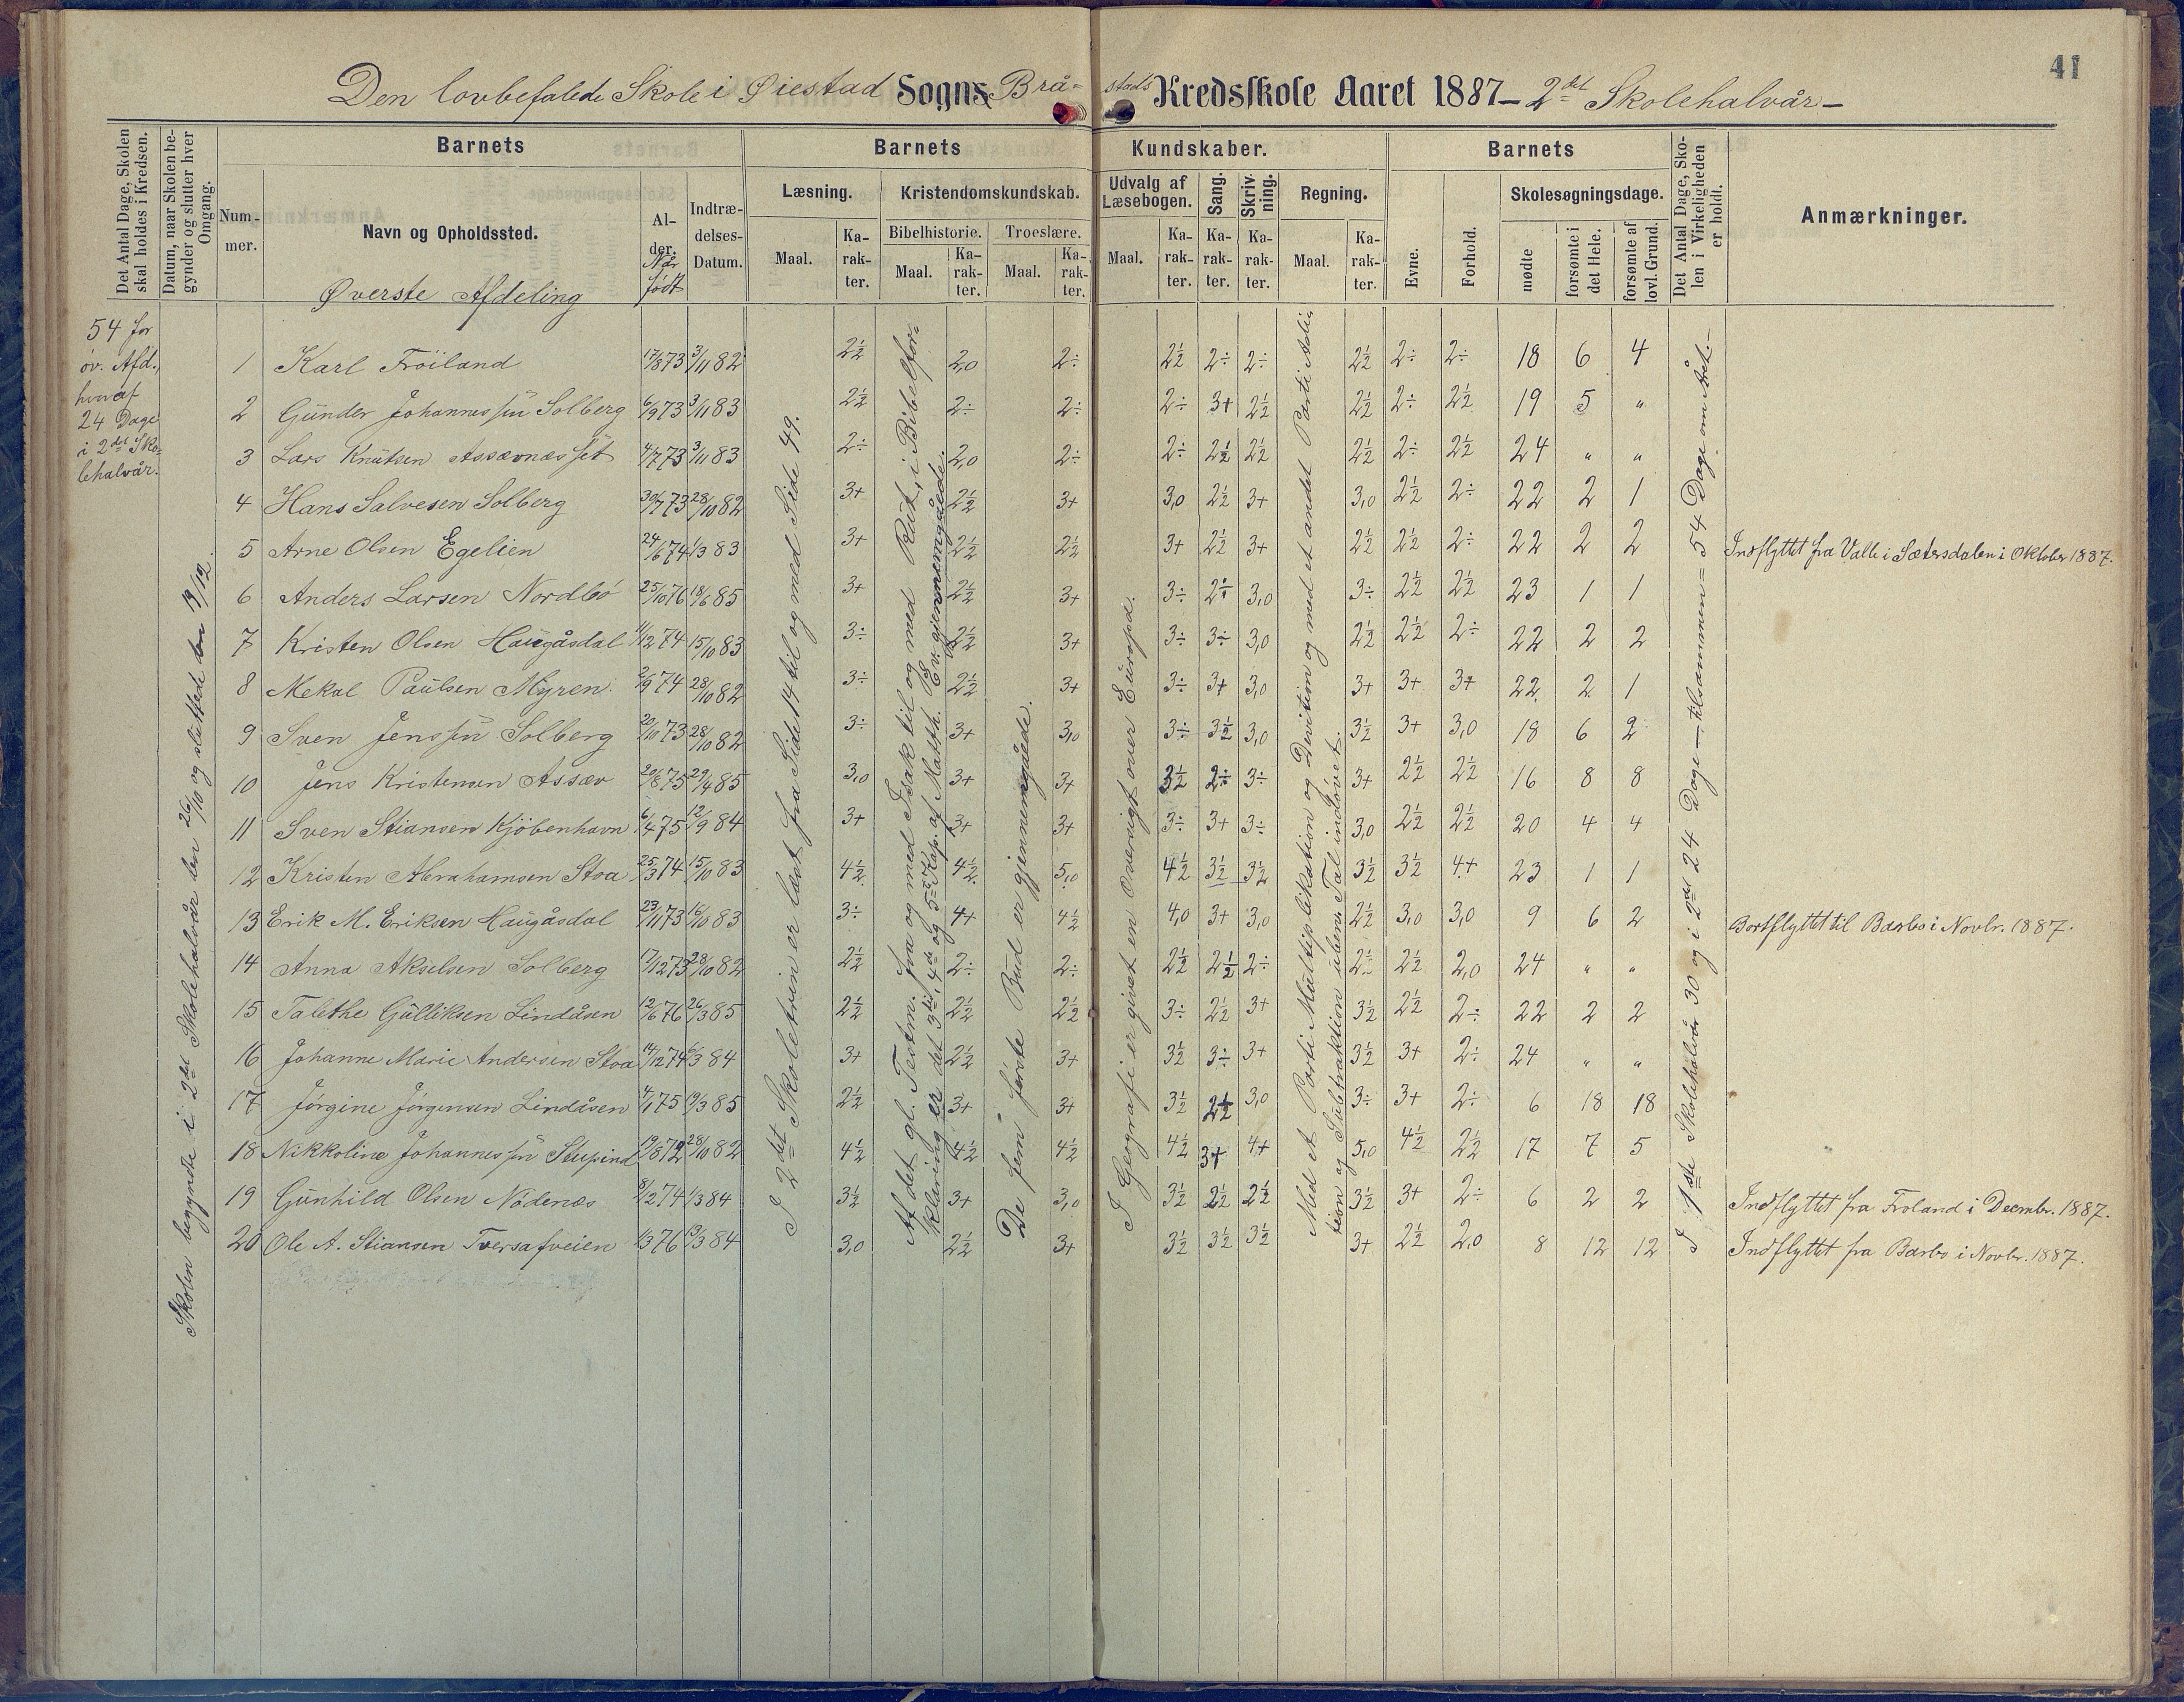 41
Den lovbefalede Skole i Øiestad Sogns Brå= stads Kredsskole Aaret 1887 - 2det Skolehalvår -
Det Antal Dage, Skolen skal holdes i Kredsen.
Datum, naar Skolen begynder og slutter hver Omgang.
Barnets
Nummer.
Navn og Opholdssted.
Øverste Afdeling
Alder. Når født
Indtrædelses-Datum.
Barnets Kundskaber.
Læsning. Maal. Karakter.
Kristendomskundskab.
Bibelhistorie. Maal. Karakter.
Troeslære. Maal. Karakter.
Udvalg af Læsebogen. Maal. Karakter.
Sang. Karakter.
Skrivning. Karakter.
Regning. Maal. Karakter.
Barnets
Evne. Forhold.
Skolesøgningsdage.
mødte forsømte i det Hele. forsømte af lovl. Grund.
Det Antal Dage, Skolen i Virkeligheden er holdt.
Anmærkninger.
54 for
öv. Afd.,
hvoraf
24 Dage
i 2det Sko-
lehalvår.
Skolen begynte i 2det Skolehalvår den 26/10 og sluttede den 19/12.
I 2det Skoletrin er læst fra Side 14 til og med Side 49.
Af det gl. Testm. fra og med Isak til og med Rut, i Bibelfor=
klaring er det 3die, 4de og 5te Kap. af Matth. Ev. gjennemgåede.
De fem første Bud er gjennemgåede.
I Geografi er givet en Oversigt over Europa.
Med et Parti Multiplikation og Division og med et andet Parti Addi=
tion og Subtraktion i ubenv. Tal indövet.
I 1ste Skolehalvår 30 og i 2det 24 Dage — tilsammen = 54 Dage om Året. —
1 Karl Fröiland 17/8 73 3/11 82 2½ 2,0 2÷ 2½ 2÷ 2÷ 2½ 2÷ 2÷ 18 6 4
2 Gunder Johannessen Solberg 6/9 73 3/11 83 2½ 2÷ 2÷ 2÷ 3+ 2½ 2½ 2÷ 2½ 19 5 "
3 Lars Knutsen Assævnæsset 4/7 73 3/11 83 2÷ 2,0 2÷ 2÷ 2½ 2½ 2½ 2÷ 2½ 24 " "
4 Hans Salvesen Solberg 30/7 73 28/10 82 3+ 2½ 3+ 3,0 2½ 3+ 3,0 2½ 2÷ 22 2 1
5 Arne Olsen Egelien 24/6 74 1/3 83 3+ 2½ 2½ 3+ 2½ 3+ 2½ 2½ 2÷ 22 2 2 Indflyttet fra Valle i Sætersdalen i Oktober 1887.
6 Anders Larsen Nordbö 25/10 76 18/6 85 3+ 2½ 3+ 3÷ 2÷ 3,0 3÷ 2½ 2½ 23 1 1
7 Kristen Olsen Haugåsdal 11/12 74 15/10 83 3÷ 2½ 3+ 3÷ 3÷ 3,0 2½ 2½ 2÷ 22 2 2
8 Mekal Paulsen Myren 2/9 74 28/10 82 3÷ 2½ 3+ 3÷ 3+ 3,0 3+ 3+ 3+ 22 2 1
9 Sven Jenssen Solberg 20/10 73 28/10 82 3÷ 3+ 3,0 3÷ 3½ 3,0 3½ 3+ 3,0 18 6 2
10 Jens Kristensen Assæv 20/8 75 29/4 85 3,0 3+ 3+ 3½ 2÷ 3÷ 3+ 2½ 2½ 16 8 8
11 Sven Stiansen Kjöbenhavn 6/4 75 12/9 84 3+ 3+ 3+ 3÷ 3+ 3÷ 3,0 2½ 2½ 20 4 4
12 Kristen Abrahamsen Stoa 25/3 74 15/10 83 4½ 4½ 5,0 4½ 3½ 3½ 3½ 3½ 4+ 23 1 1
13 Erik M. Eriksen Haugåsdal 23/11 73 16/10 83 3÷ 4+ 4½ 4,0 3+ 3,0 2½ 3,0 3,0 9 6 2 Bortflyttet til Barbo i Novbr. 1887.
14 Anna Akselsen Solberg 17/12 73 28/10 82 2½ 2÷ 2÷ 2½ 2½ 2÷ 2½ 2½ 2,0 24 " "
15 Talethe Gulliksen Lindåsen 12/6 76 26/3 85 2½ 2½ 2½ 3÷ 2½ 3+ 3½ 2½ 2÷ 22 2 2
16 Johanne Marie Andersen Stoa 14/12 74 6/3 84 3+ 2½ 3+ 3½ 3÷ 3+ 3½ 3+ 2÷ 24 " "
17 Jörgine Jörgensen Lindåsen 4/1 75 19/3 85 2½ 3+ 3+ 3½ 2½ 3,0 3÷ 3+ 2÷ 6 18 18
18 Nikkoline Johannessen 19/8 72 28/10 82 4½ 4½ 4½ 4½ 3+ 4+ 5,0 4½ 2½ 17 7 5
19 Gunhild Olsen Nödenæs 8/12 74 1/3 84 3½ 3+ 3,0 3½ 2½ 2½ 3½ 3+ 2÷ 6 2 2 Indflyttet fra Froland i Decembr. 1887.
20 Ole A. Stiansen Tversafveien 1/3 76 13/3 84 3,0 2½ 3+ 3½ 3½ 3½ 3+ 2½ 2,0 8 12 12 Indflyttet fra Barbo i Novbr. 1887.